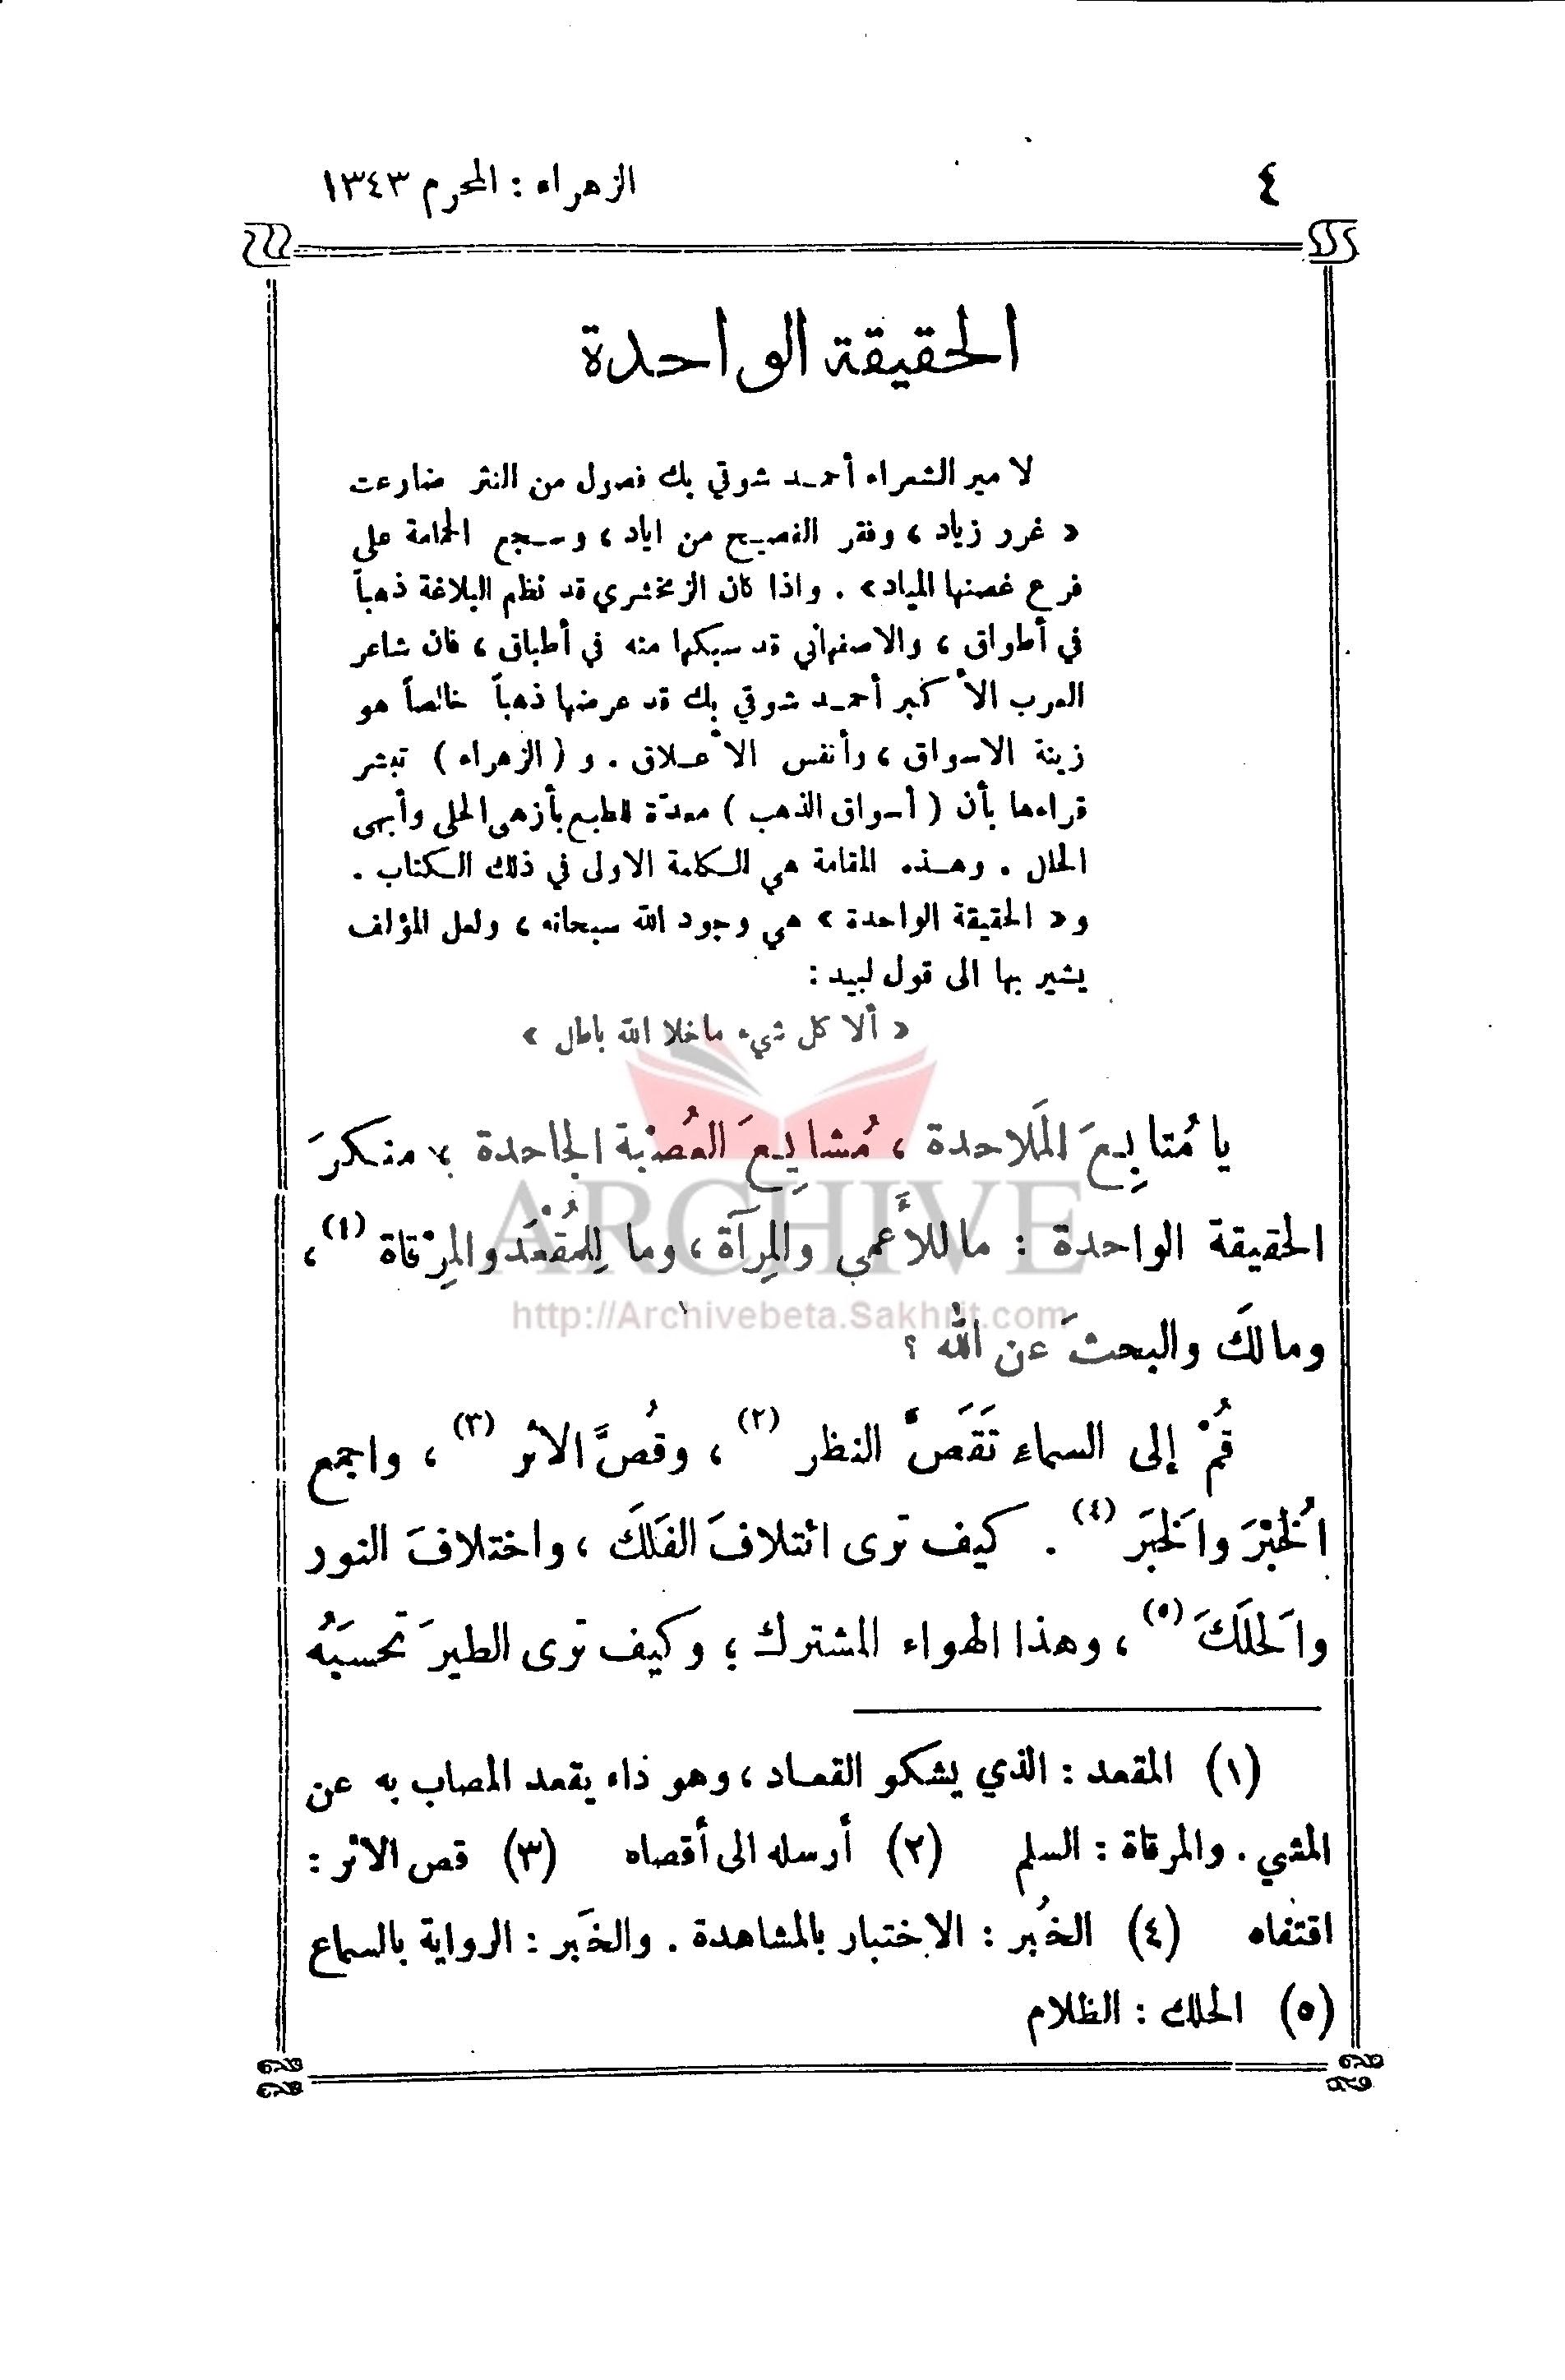 ٤
الزهراء : المحرم ١٣٤٣
الحقيقة الواحدة
لأمير الشعراء أحمد شوقي بك فصول من النثر ضارعت
« غرر زياد ، وفقر الفصيح من اياد ، وسجع الحمامة على
فرع غصنها المياد » . واذا كان الزمخشري قد نظم البلاغة ذهباً
في أطواق ، والاصفهاني قد سبكها منه في أطباق ، فان شاعر
العرب الأكبر أحمد شوقي بك قد عرضها ذهباً خالصاً هو
زينة الاسواق ، وأنفس الأعلاق . و ( الزهراء ) تبشر
قراءها بأن ( أسواق الذهب ) معدّة للطبع بأزهى الحلى وأبهى
الحلل . وهذه المقامة هي الكلمة الاولى في ذلك الكتاب .
و « الحقيقة الواحدة » هي وجود الله سبحانه ، ولعل المؤلف
يشير بها الى قول لبيد :
« ألا كل شيء ما خلا الله باطل »
يا مُتابِعَ المَلاحدة ، مُشايِعَ العُصْبة الجاحدة ، منكرَ
الحقيقة الواحدة : ما للأَعمى والمِرآة ، وما لِلمُقْعَد والمِرْقاة (١) ،
وما لكَ والبحثَ عن الله ؟
قُمْ إلى السماء تَقَصَّ النظر (٢) ، وقُصَّ الاثر (٣) ، واجمع
الخُبْرَ والخَبَر (٤) . كيف ترى ائتلافَ الفَلَكَ ، واختلافَ النور
والحَلَكَ (٥) ، وهذا الهواء المشترك ؛ وكيف ترى الطيرَ تحسَبَهُ
(١) المقعد : الذي يشكو القعاد ، وهو داء يقعد المصاب به عن
المشي . والمرقاة : السلم (٢) أرسله الى أقصاه (٣) قص الاثر :
اقتفاه (٤) الخُبر : الاختبار بالمشاهدة . والخَبر : الرواية بالسماع
(٥) الحلك : الظلام
ARCHIVE
http://Archivebeta.Sakhrit.com